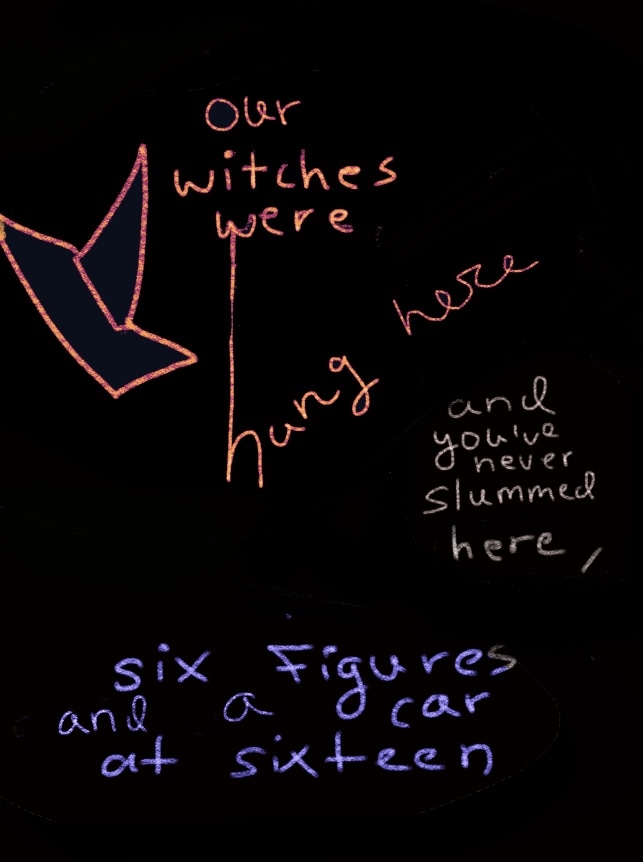 our
witches
were
hung here
and
you've
never
slummed
here,
six Figures
and a car
at sixteen